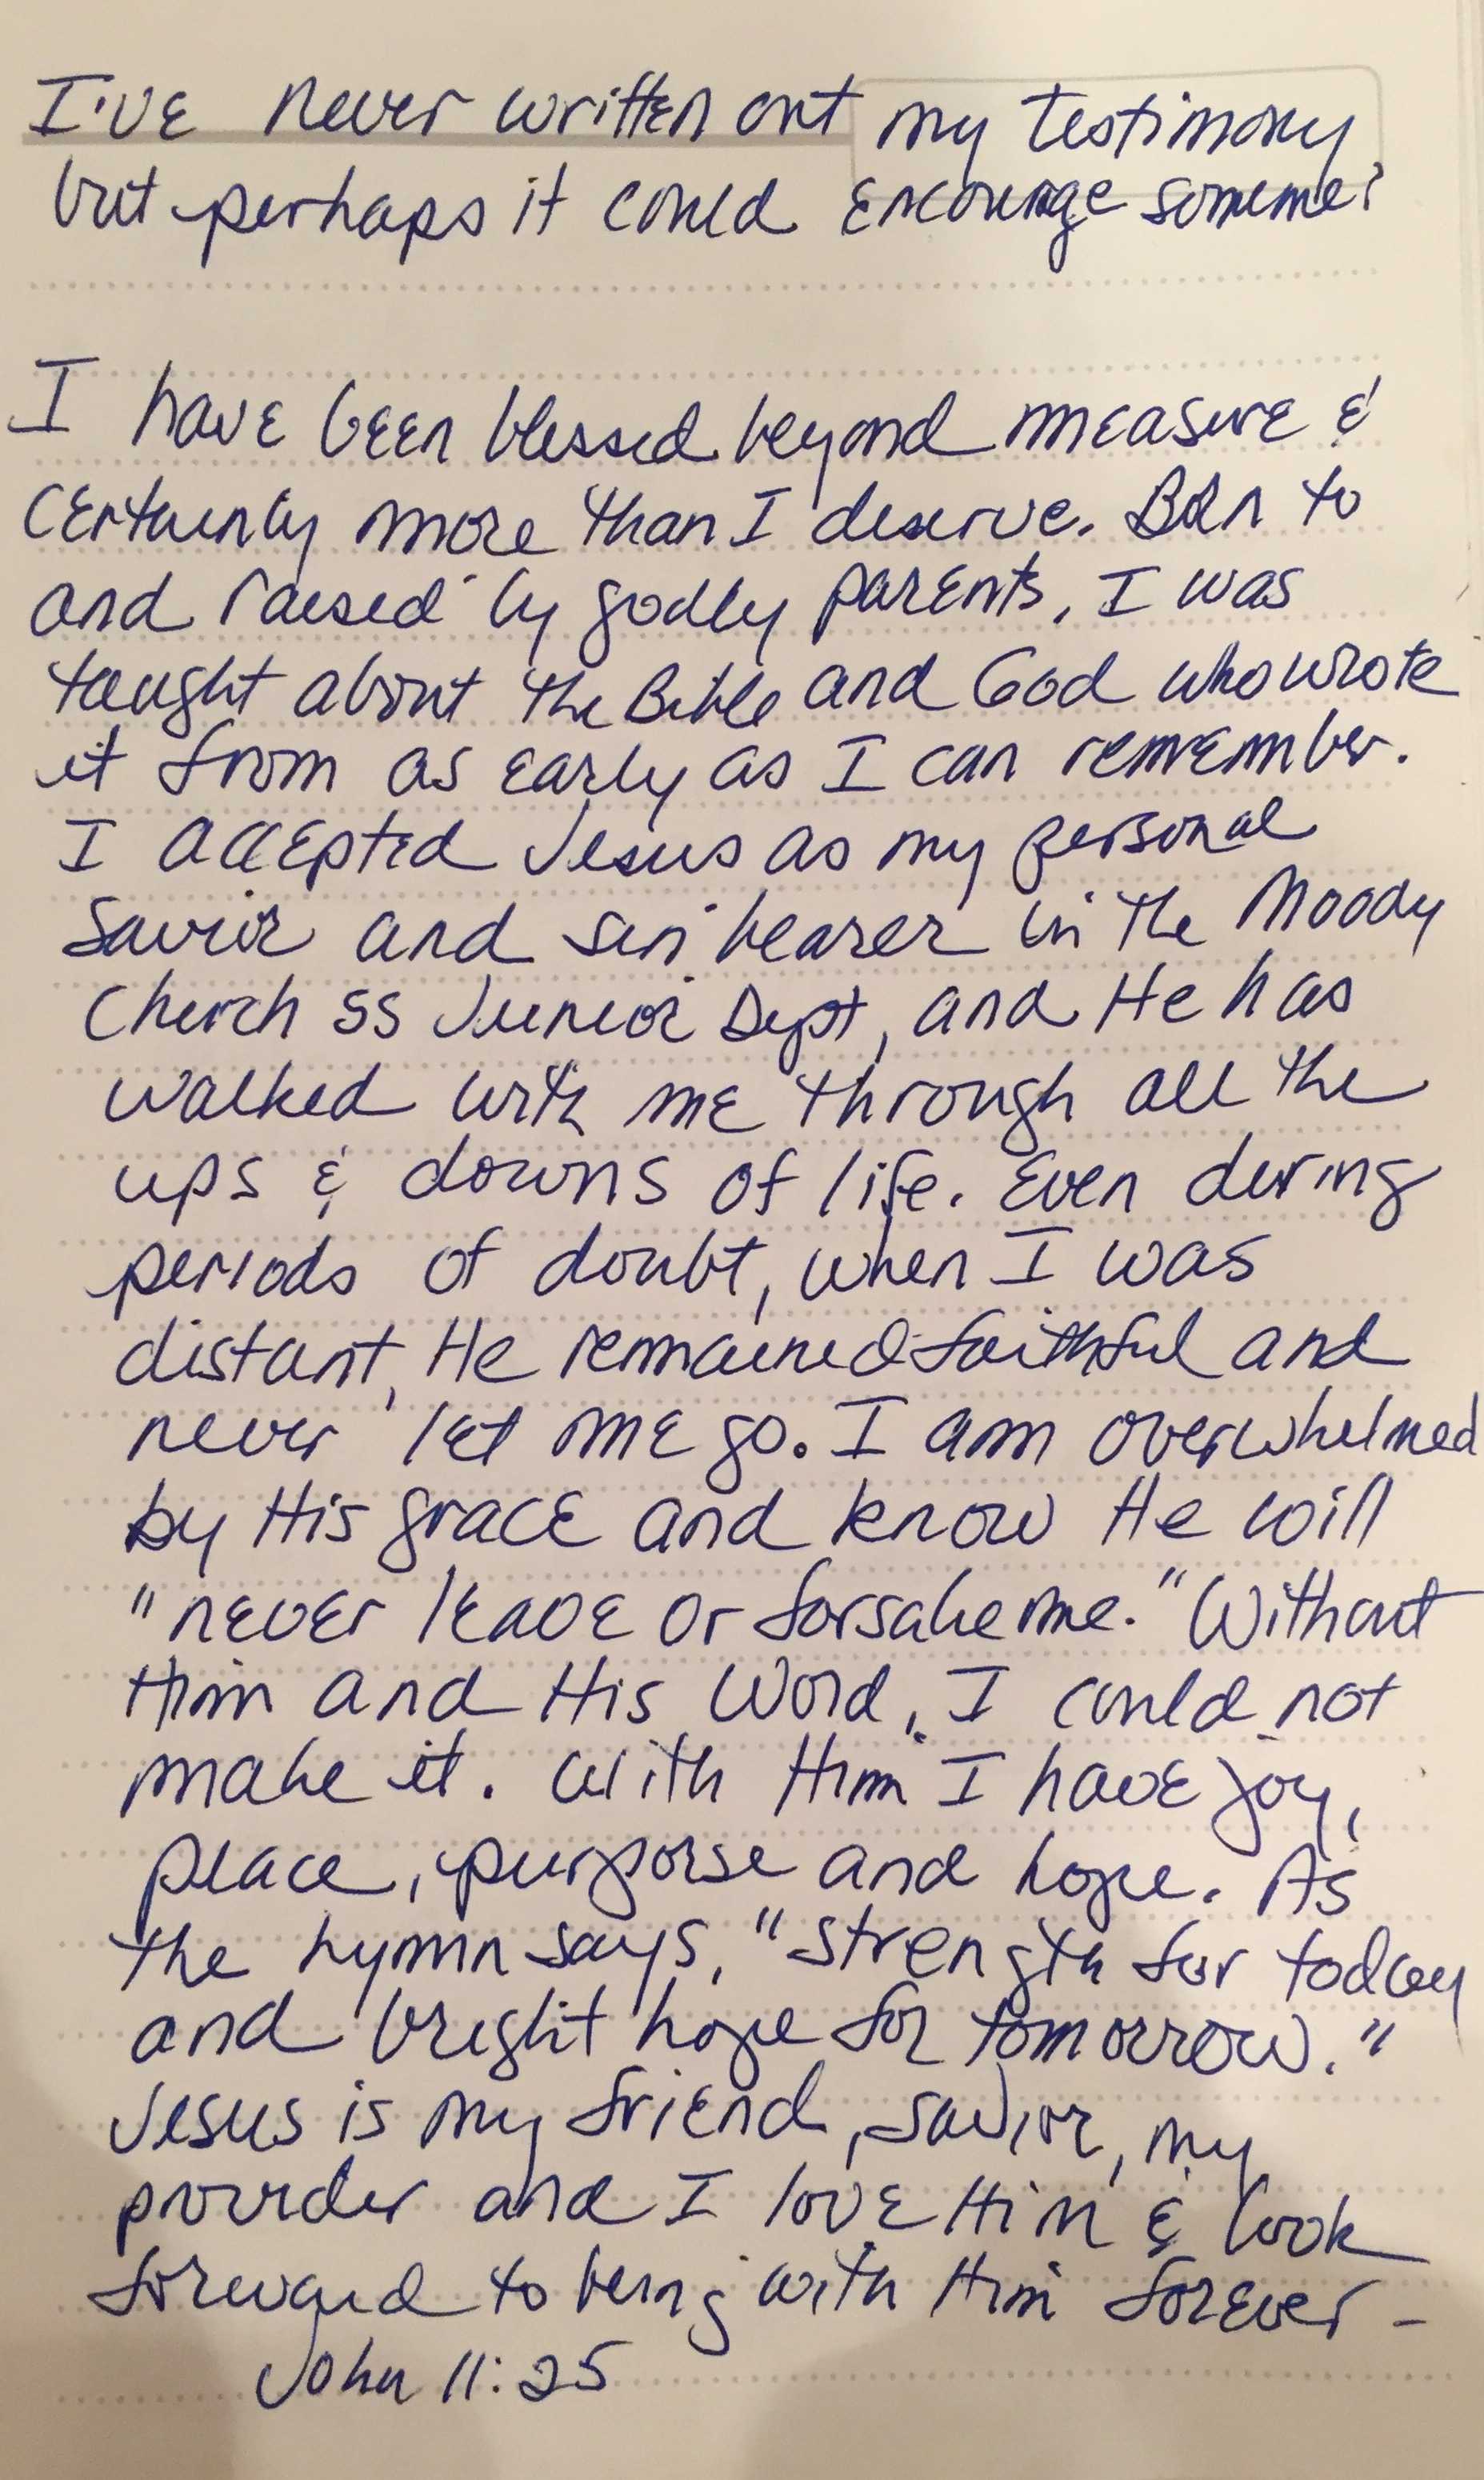 I've never written out my testimony,
but perhaps it could encourage someone?
I have been blessed beyond measure &
certainly more than I deserve. Born to
and raised by godly parents, I was
taught about the Bible and God who wrote
it from as early as I can remember.
I accepted Jesus as my personal
Savior and sin bearer in the Moody
Church SS Junior Dept, and He has
walked with me through all the
ups & downs of life. Even during
periods of doubt, when I was
distant, He remained faithful and
never let me go. I am overwhelmed
by His grace and know He will
"never leave or forsake me." Without
Him and His Word, I could not
make it. With Him I have joy,
peace, purpose and hope. As
the hymn says, "strength for today
and bright hope for tomorrow."
Jesus is my friend, savior, my
provider and I love Him & look
forward to being with Him forever -
John 11:25